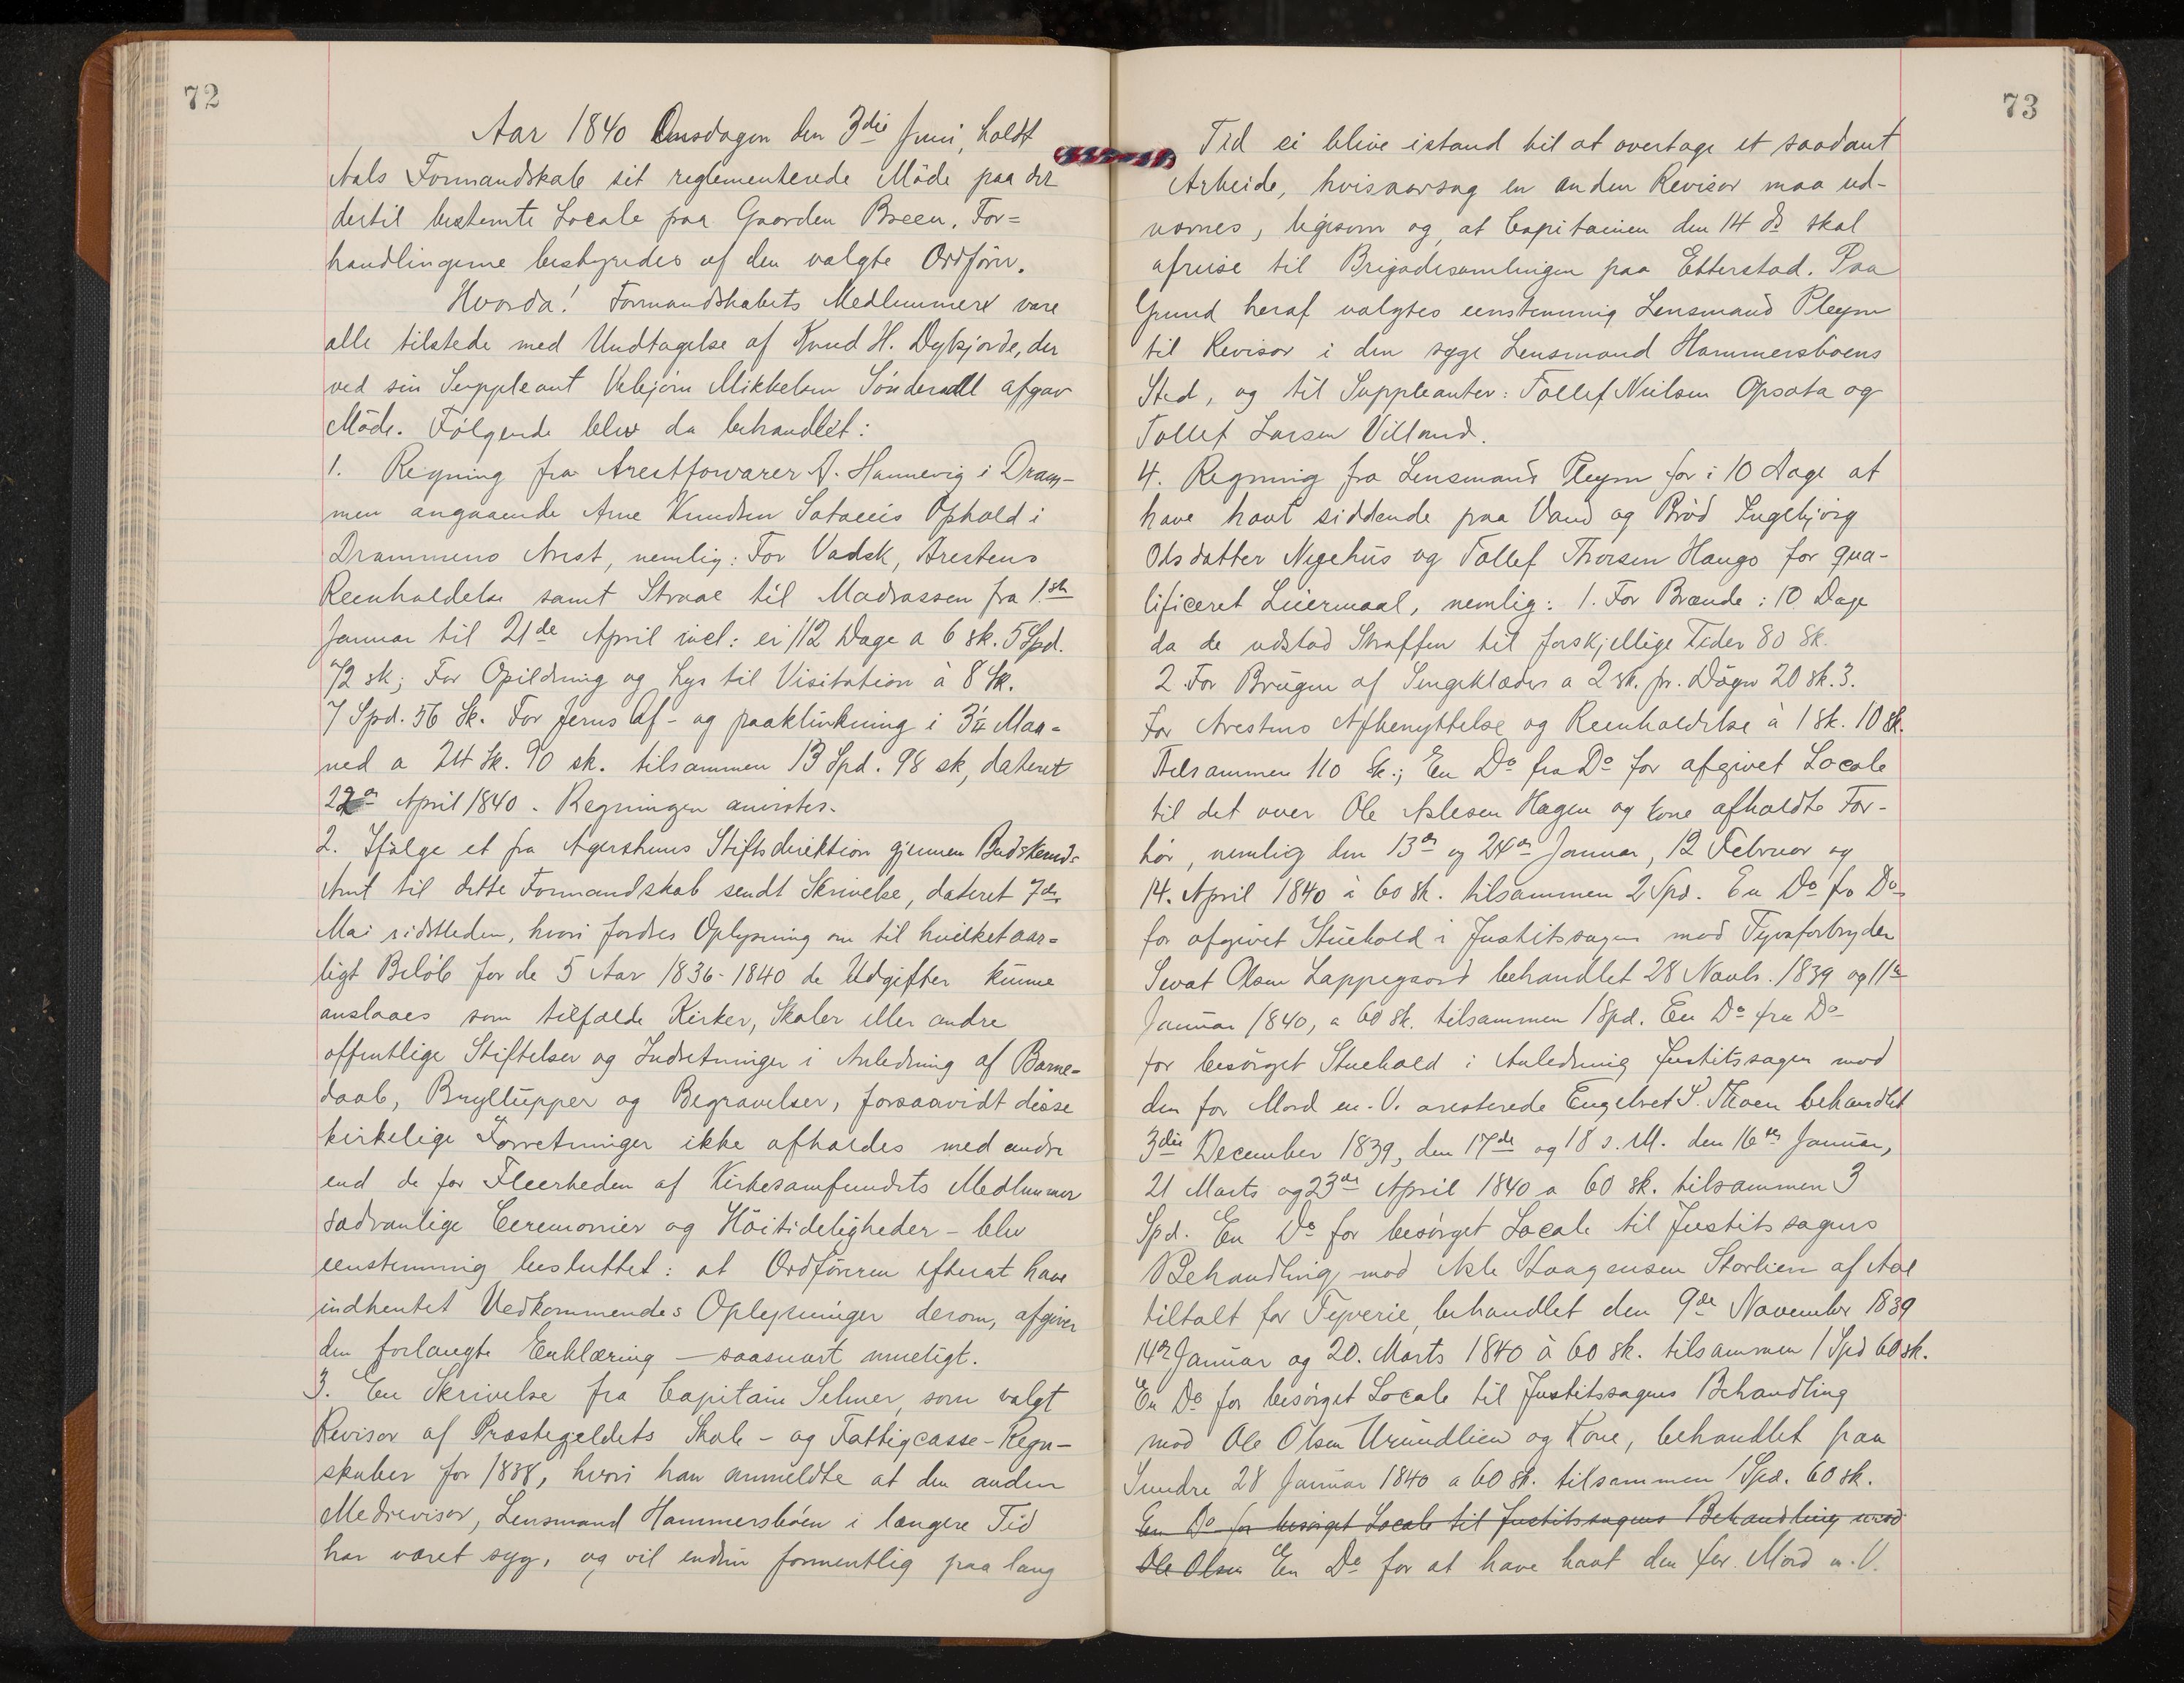 72
Aar 1840 Onsdagen den 3die Juni, holdt
Aals Formandskab sit reglementerede Möde paa det
dertil bestemte Locale paa Gaarden Breen. For=
handlingerne bestyredes af den valgte Ordförer.
Hvorda! Formandskabets Medlemmer vare
alle tilstede med Undtagelse af Knud H. Dykjorde, der
ved sin Suppleant Vebjörn Mikkelsen Sönderaal afgav
Möde. Fölgende blev da behandlet:
1. Regning fra Arestforvarer A. Hannevig i Dram-
men angaaende Arne Knudsen Sataeies Ophold i
Drammens Arest, nemlig: For Vadsk, Arestens
Reenholdelse samt Straae til Madrassen fra 1ste
Januar til 21de April incl: ei 112 Dage a 6 sk. 5 Spd.
72 sk; For Opildning og Lys til Visitation à 8 Sk.
7 Spd. 56 Sk. For Jerns Af- og paaklinkning i 3¾ Maa=
ned a 24 Sk. 90 sk. tilsammen 13 Spd. 98 sk, dateret
22de April 1840. Regningen anvistes.
2. Ifölge et fra Agershuus Stiftsdirektion gjennem Budskeruds
Amt til dette Formandskab sendt Skrivelse, dateret 7de
Mai sidstleden, hvori fordres Oplysning om til hvilket aar=
ligt Belöb for de 5 Aar 1836-1840 de Udgifter kunne
anslaaes som tilfalde Kirker, Skoler eller andre
offentlige Stiftelser og Indretninger i Anledning af Barne=
daab, Bryllupper og Begravelser, forsaavidt disse
kirkelige Forretninger ikke afholdes med andre
end de for Fleerheden af Kirkesamfundets Medlemmer
sædvanlige Ceremonier og Höitideligheder - blev
eenstemmig besluttet: at Ordföreren efterat have
indhentet Vedkommendes Oplysninger derom, afgiver
den forlangte Erklæring - saasnart mueligt.
3. En Skrivelse fra Capitain Selmer, som valgt
Revisor af Præstegjeldets Skole- og Fattigcasse-Regn-
skaber for 1838, hvori han anmeldte at den anden
Medrevisor, Lensmand Hammersböen i længere Tid
har været syg, og vil endnu formentlig paa lang
73
Tid ei blive istand til at overtage et saadant
Arbeide, hvisaarsag en anden Revisor maa ud-
nævnes, ligesom og, at Capitainen den 14 ds skal
afreise til Brigadesamlingen paa Etterstad. Paa
Grund heraf valgtes eenstemmig Lensmand Pleym
til Revisor i den syge Lensmand Hammersboens
Sted, og til Suppleanter: Tollef Nielsen Opsata og
Tollef Larsen Villand.
4. Regning fra Lensmand Pleym for i 10 Dage at
have havt siddende paa Vand og Bröd Ingebjörg
Olsdatter Nygehus og Tollef Thorsen Haugo for qua-
lificeret Leiermaal, nemlig: 1. For Brænde i 10 Dage
da de udstod Straffen til forskjellige Tider 80 Sk.
2 For Brugen af Sengeklæder a 2 sk. pr. Dögn 20 sk. 3.
For Arestens Afbenyttelse og Reenholdelse à 1 sk. 10 sk.
Tilsammen 110 Sk.; En Do fra Do for afgivet Locale
til det over Ole Aslesen Hagen og Kone afholdte For-
hör, nemlig den 13de og 24de Januar, 12 Februar og
14. April 1840 à 60 sk. tilsammen 2 Spd. En Do fra Do
for afgivet Stuehold i Justitssagen mod Tyvsforbryder
Sevat Olsen Lappegaard behandlet 28 Novbr. 1839 og 11te
Januar 1840, a 60 sk. tilsammen 1 Spd. En Do fra Do
for besörget Stuehold i Anledning Justitssagen mod
den for Mord m.V. aresterede Engebret S. Moen behandlet
3die December 1839, den 17de og 18 s. M. den 16de Januar,
21 Marts og 23de April 1840 a 60 sk. tilsammen 3
Spd. En Do for besörget Locale til Justitssagens
Behandling mod Asle Haagensen Storlien af Aal
tiltalt for Tyverie, behandlet den 9de November 1839
14de Januar og 20. Marts 1840 à 60 sk. tilsammen 1 Spd 60 sk.
En Do for besörget Locale til Justitssagens Behandling
mod Ole Olsen Urundlien og Kone, behandlet paa
Sundre 28 Januar 1840 a 60 sk. tilsammen 1 Spd. 60 sk.
En Do for besörget Locale til Justitssagens Behandling mod
Ole Olsen En Do for at have havt den for Mord m.V.